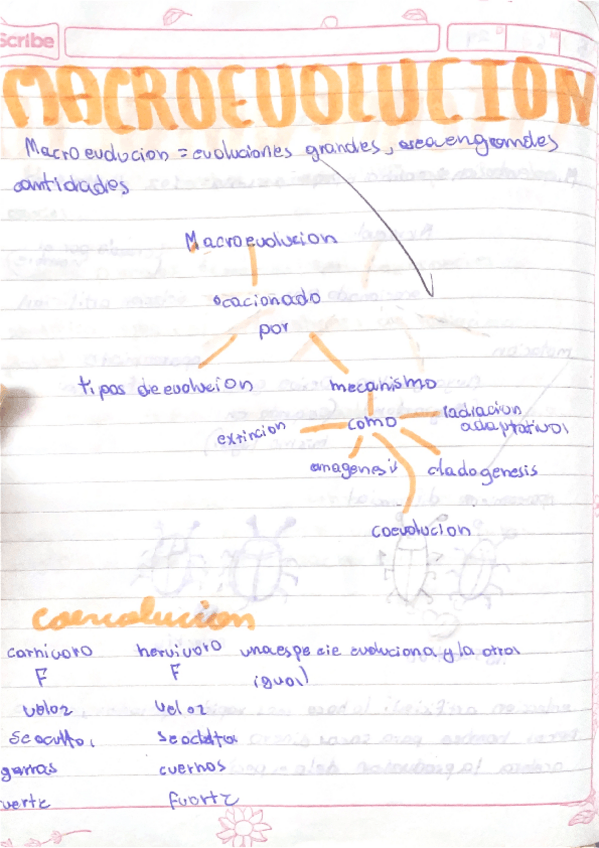 Scribe
MACROEVOLUCION
Macroevolucion = evoluciones grandes, osea en grandes
cantidades
Macroevolucion
ocacionado
por
tipos de evolucion mecanismo
extincion como radiacion
adaptativa
anagenesis cladogenesis
coevolucion
coevolucion
carnivoro hervivoro una especie evoluciona y la otra
F F igual
veloz veloz
se oculta se oculta
garras cuernos
uerte fuerte